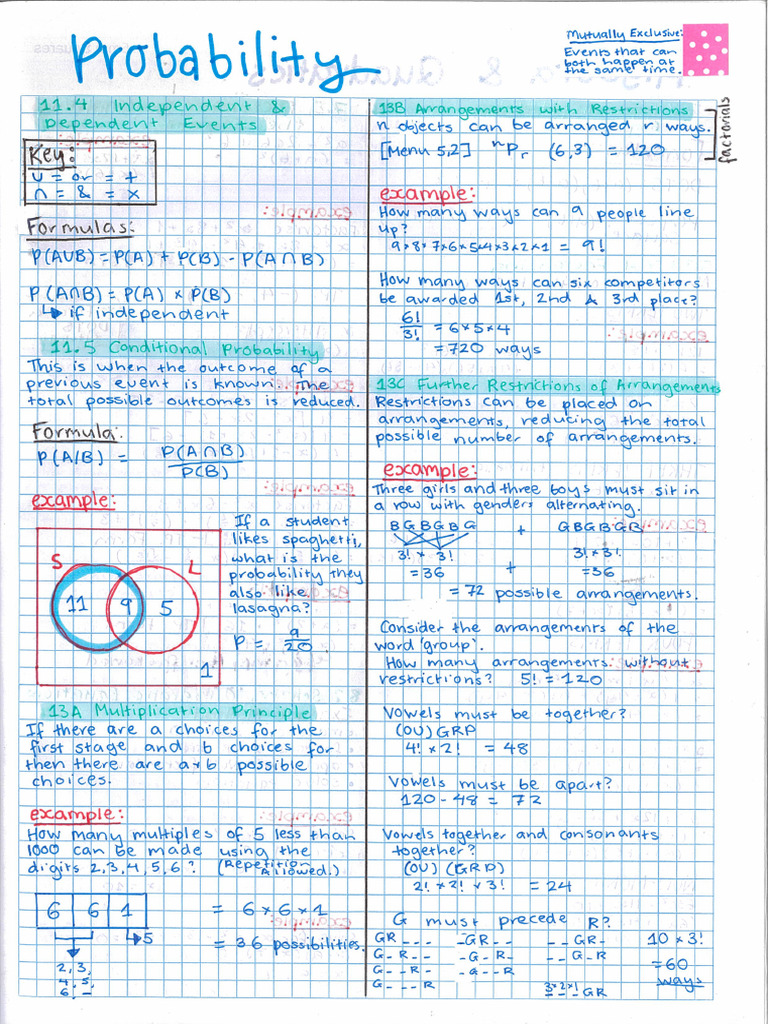 Probability
Mutually Exclusive:
Events that can
both happen at
the same time.
11.4 Independent &
Dependent Events
Key:
∪ = or = +
∩ = & = ×
Formulas:
P(A∪B) = P(A) + P(B) - P(A∩B)
P(A∩B) = P(A) × P(B)
↳ if independent
11.5 Conditional Probability
This is when the outcome of a
previous event is known. The
total possible outcomes is reduced.
Formula:
P(A/B) = P(A∩B)
P(B)
example:
If a student
likes spaghetti,
what is the
probability they
also like
lasagna?
P = 9/20
S L
11 9 5
1
13A Multiplication Principle
If there are a choices for the
first stage and b choices for
then there are a×b possible
choices.
example:
How many multiples of 5 less than
1000 can be made using the
digits 2,3,4,5,6? (Repetition
Allowed.)
6 6 1 = 6×6×1
→5
= 36 possibilities.
2, 3,
4, 5,
6, _
13B Arrangements with Restrictions
n objects can be arranged r ways.
[Menu 5,2] nPr (6,3) = 120
factorials
example:
How many ways can 9 people line
up?
9×8×7×6×5×4×3×2×1 = 9!
How many ways can six competitors
be awarded 1st, 2nd & 3rd place?
6!/3! = 6×5×4
= 720 ways
13C Further Restrictions of Arrangements
Restrictions can be placed on
arrangements, reducing the total
possible number of arrangements.
example:
Three girls and three boys must sit in
a row with genders alternating.
BGBGBG + GBGBGB
3! × 3! 3! × 3!
= 36 + = 36
= 72 possible arrangements.
Consider the arrangements of the
word 'group'.
How many arrangements without
restrictions? 5! = 120
Vowels must be together?
(OU)GRP
4! × 2! = 48
Vowels must be apart?
120 - 48 = 72
Vowels together and consonants
together?
(OU) (GRP)
2! × 2! × 3! = 24
G must precede R?
GR _ _ _ _GR_ _ _ _GR_ 10 × 3!
G_R_ _ _G_R_ _ _G_R = 60
G_ _R_ _G_ _R ways
G_ _ _R 3×2×1 GR